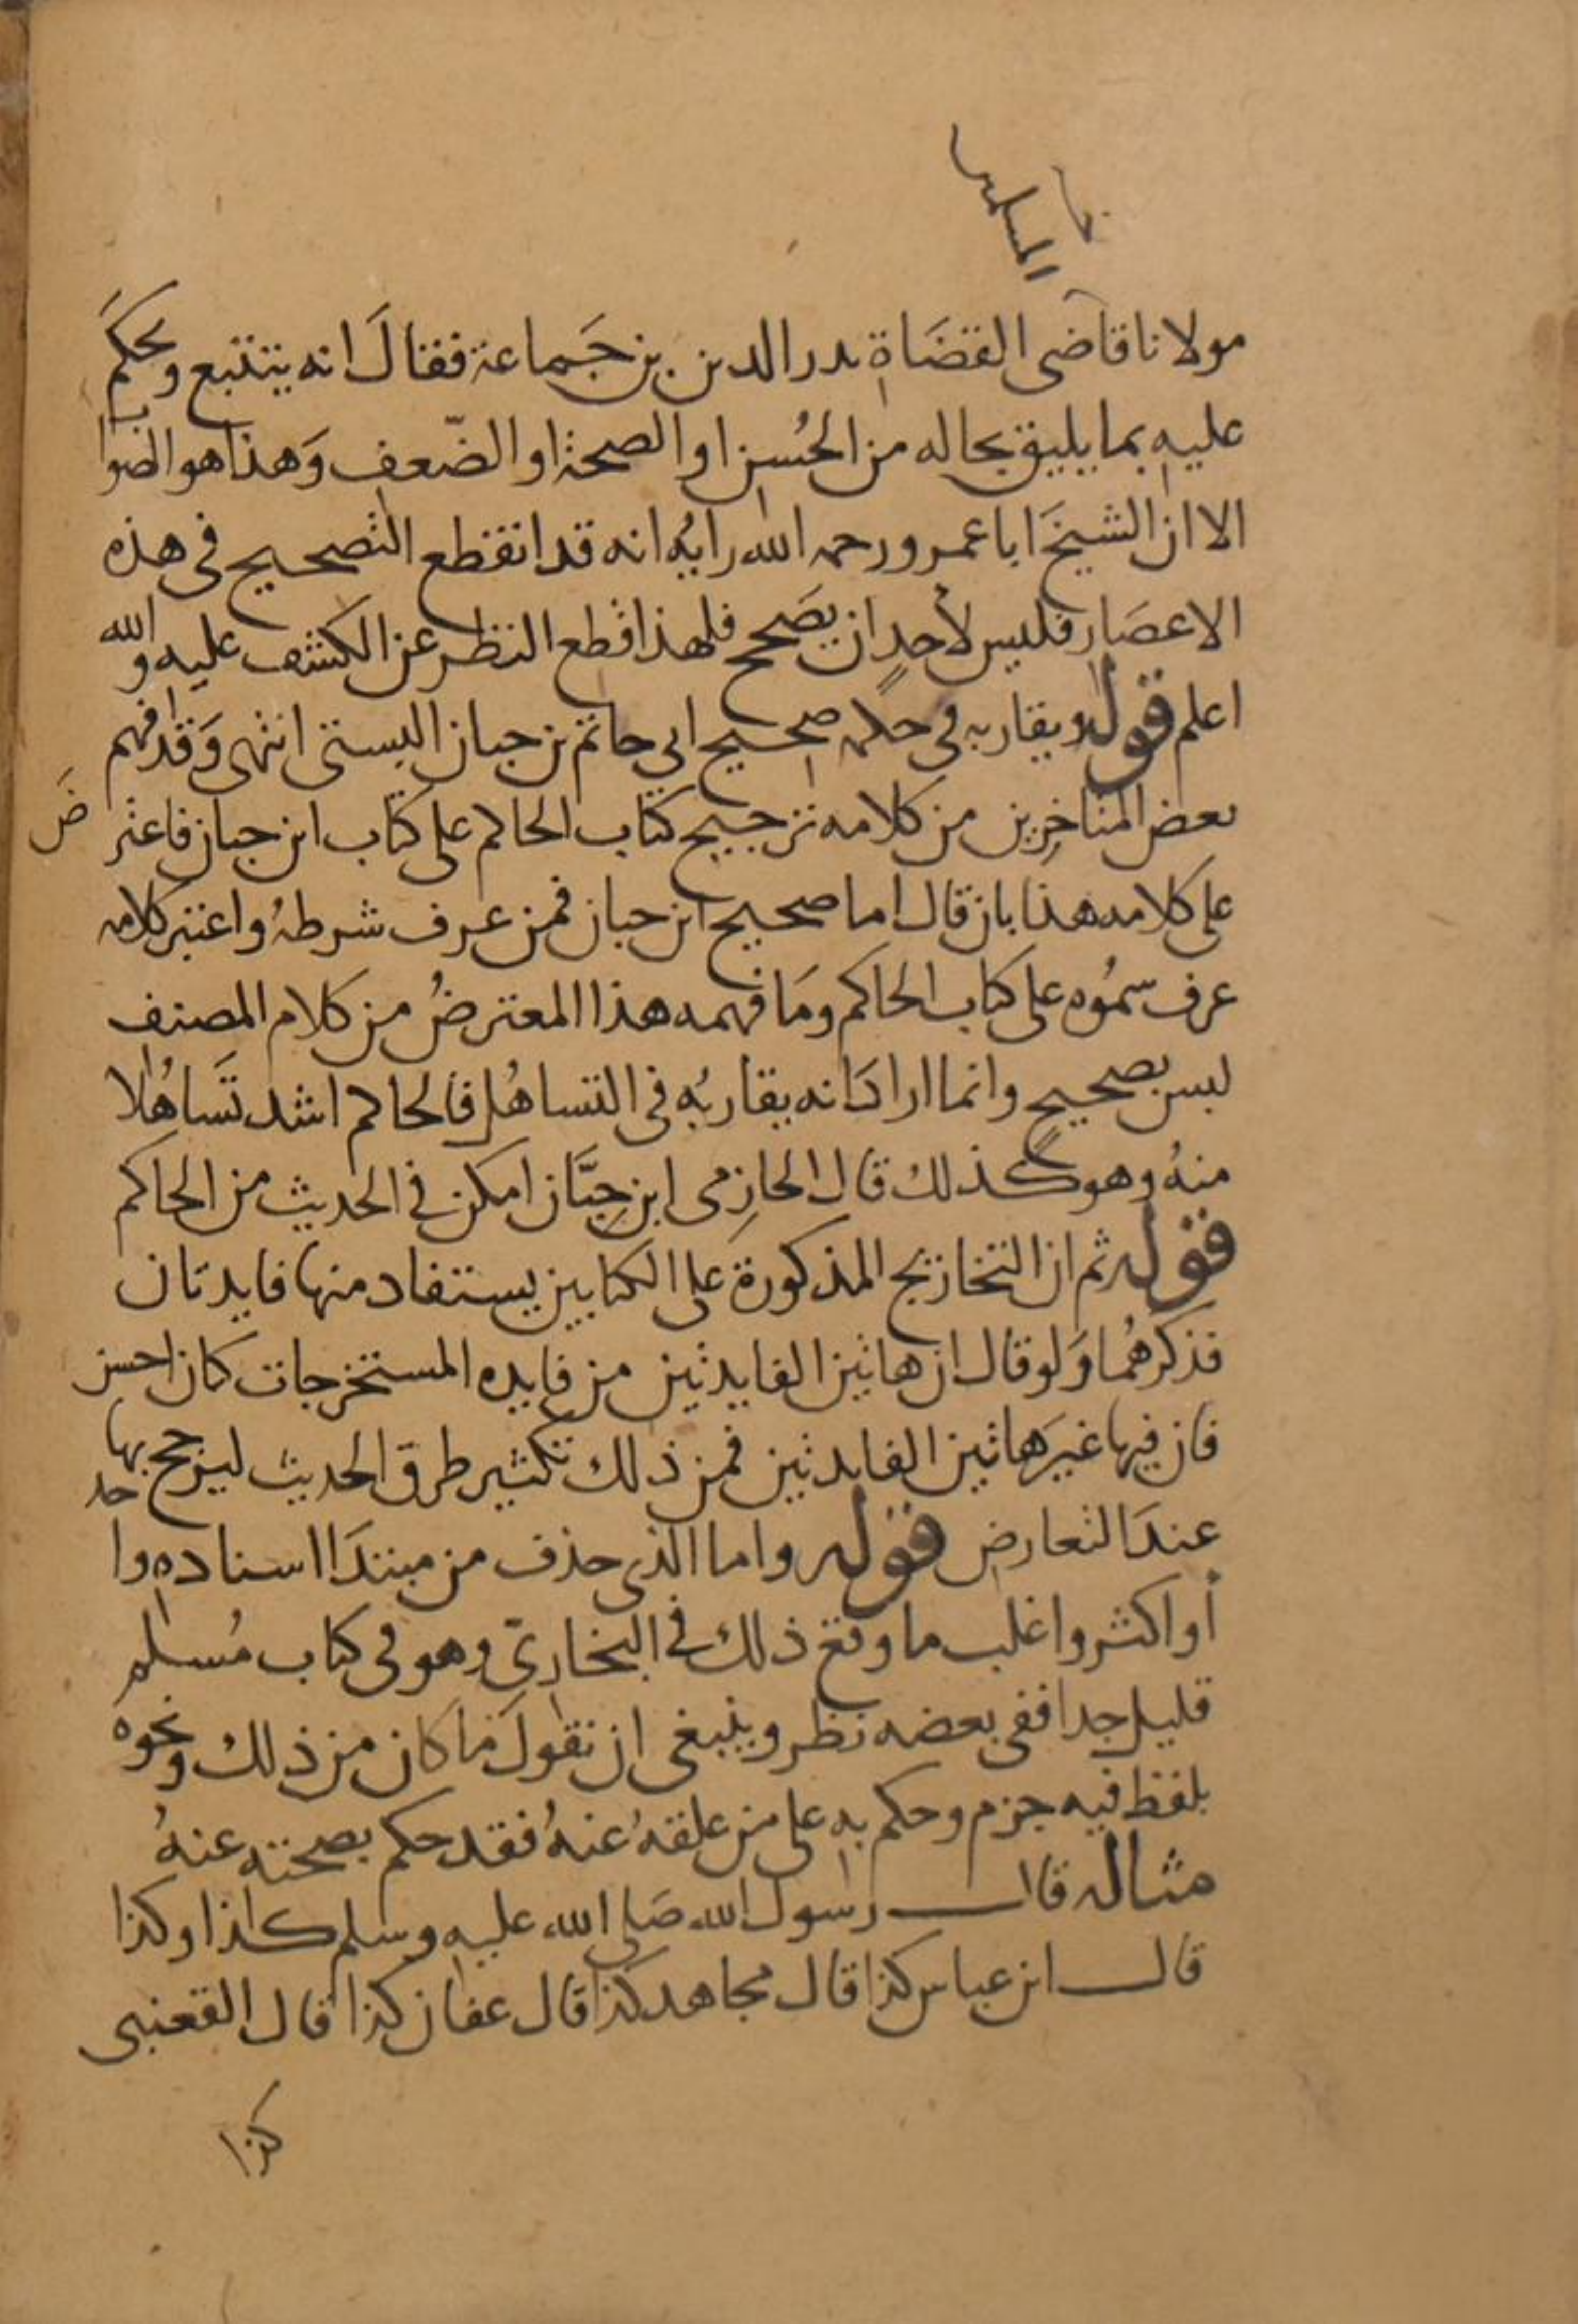 المسلمين
مولانا قاضى القضاة بدر الدين بن جماعة فقال انه يتتبع ويحكم
عليه بما يليق بحاله من الحُسن او الصحة او الضّعف وَهذا هو الصواب
الا ان الشيخَ ابا عمرو رحمه الله رايُه انه قد انقطع التصحيح فى هذه
الاعصَار فليس لأحدٍ ان يصَحح فلهذا قطع النظر عن الكشف عليه والله
اعلم قوله ويقاربه فى حكمه صحيح ابى حاتم بن حبان البستى انتهى وَقد فهم
بعض المتاخِرين من كلامه ترجيح كتاب الحاكم على كتاب ابن حبان فاعتر
ضَ
على كلامه هذا بان قال اما صحيح ابن حبان فمن عرف شرطهُ واعتبر كلامه
عرف سموُه على كتاب الحاكم ومَا فهمه هذا المعترضُ من كلام المصنف
ليس بصحيحٍ وانما ارادَ انه يقاربُه فى التساهُل فالحاكم اشد تَساهُلا
منهُ وهو كذلك قال الحازِمى ابن حِبَّان امكن فى الحديث من الحاكم
قوله ثم ان التخاريج المذكورة على الكتابين يستفاد منها فايدتان
فذكرهُما وَلو قال ان هاتين الفايدتين من فايده المستخرجات كان احسن
فان فيها غيرَ هاتين الفايدتين فمن ذلك تكثير طرق الحديث ليرجح بها
عندَ التعارض قوله واما الذى حذف من مبتدَا اسناده واحد
أو اكثر واغلب ما وقع ذلك فى البخارىّ وهو فى كتاب مُسلم
قليل جدا ففى بعضه نظر وينبغى ان نقولَ ما كان من ذلك ونحوه
بلفظ فيه جزم وحكم به على من علقهُ عنهُ فقد حكم بصحته عنهُ
مثاله قال رسول الله صَلى الله عليه وسلم كذا وكذا
قال ابن عباس كذا قال مجاهد كذا قال عفان كذا قال القعنبى
كذا